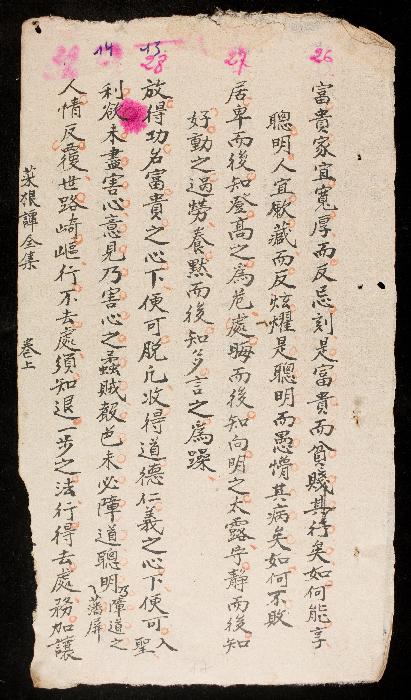 26
富貴家宜寬厚而反忌刻是富貴而貧賤其行矣如何能享
聰明人宜歛藏而反炫耀是聰明而愚懵其病矣如何不敗
27
居卑而後知登高之為危處晦而後知向明之太露守靜而後知
好動之過勞養默而後知多言之為躁
13
28
放得功名富貴之心下便可脫凡放得道德仁義之心下便可入聖
14
利欲未盡害心意見乃害心之蟊賊聲色未必障道聰明乃障道之藩屏
人情反覆世路崎嶇行不去處須知退一步之法行得去處務加讓
菜根譚全集 卷上